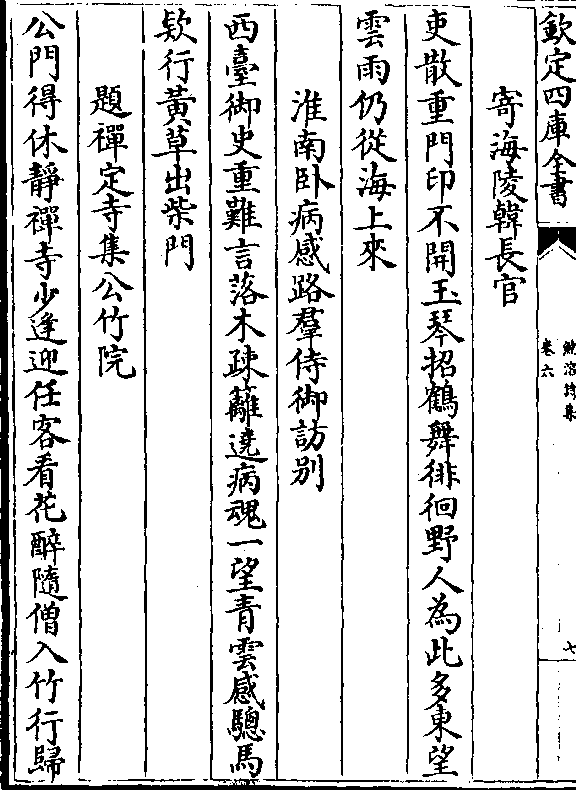 欽定四庫全書
鮑溶詩集
卷六
七
寄海陵韓長官
吏散重門印不開玉琴招鶴舞徘徊野人為此多東望
雲雨仍從海上來
淮南卧病感路羣侍御訪别
西臺御史重難言落木疎蘺遶病魂一望青雲感驄馬
欵行黃草出柴門
題禪定寺集公竹院
公門得休靜禪寺少逢迎任客看花醉隨僧入竹行歸